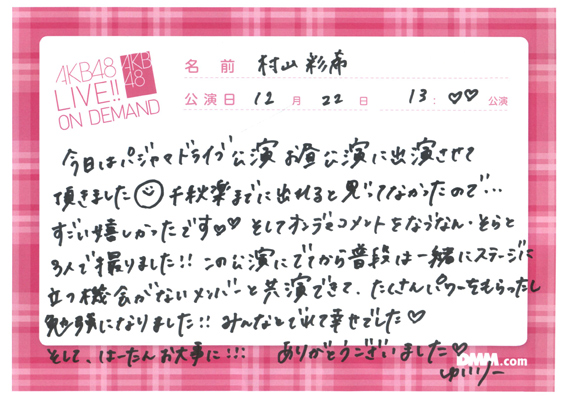 AKB48
LIVE!!
ON DEMAND
AKB
48
名前 村山彩希
公演日 12月22日 13:♡♡公演
今日はパジャマドライブ公演 お昼公演に出演させて
頂きました 千秋楽までに出れると思ってなかったので…
すごい嬉しかったです♡♡ そしてオンデマコメントをなぅなん・そらと
3人で撮りました!! この公演にでてから普段は一緒にステージに
立つ機会がないメンバーと共演できて、たくさんパワーをもらったし
勉強になりました!! みんなとでれて幸せでした♡
そして、はーたんお大事に!!! ありがとうございました♡
DMM.com
ゆいりー